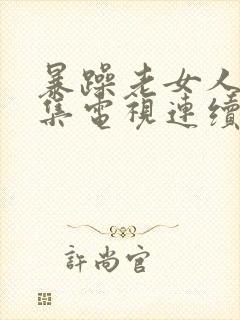 暴躁老女人
集電視連續
許尚官